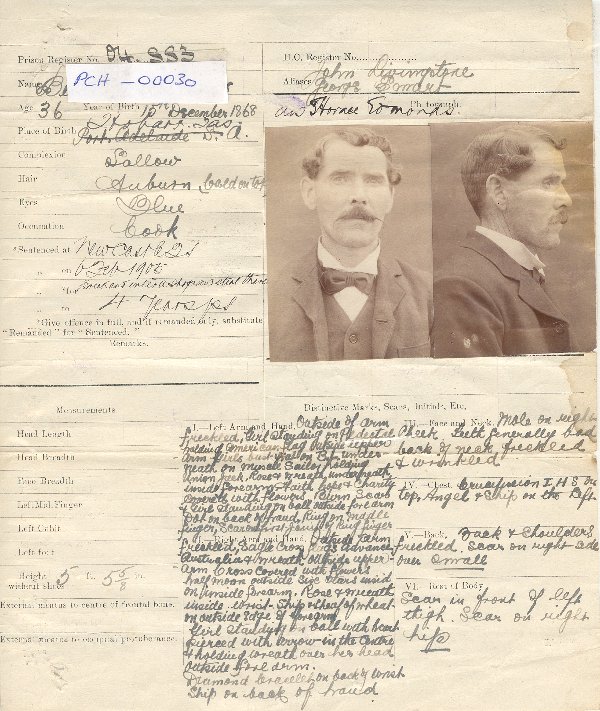 Prison Register No.
H.O. Register No.
PCH - 00030
Name
Aliases
John Livingstone
George Smart
Age 36 Year of Birth 15th December 1868
and Horace Edmonds
Photograph.
Place of Birth Hobart Tas
Port Adelaide S. A.
Complexion Sallow
Hair Auburn, bald on top
Eyes Blue
Occupation Cook
*Sentenced at Newcastle QS
" on 6 Feb 1905
" to 4 Years ps
*Give offence in full, and if remanded only, substitute
"Remanded" for "Sentenced."
Remarks.
Measurements
Head Length
Head Breadth
Face Breadth
Left Mid. Finger
Left Cubit
Left foot
Height without shoes 5 ft. 5 5/8 in.
External meatus to centre of frontal bone.
External meatus to occipital protuberance.
Distinctive Marks, Scars, Initials, Etc.
I.—Left Arm and Hand, Outside of arm
freckled, Girl standing on Pedestal
holding American flag outside upper
arm Girls bust
neath on muscle Sailor holding
Union Jack, Rose & wreath underneath
inside forearm Faith Hope & Charity
covered with flowers, Burn Scar
& Girl standing on ball outside forearm
Dot on back of hand, Ring on middle
finger, Scar first joint of Ring finger
II.—Right Arm and Hand, Outside arm
freckled, Eagle Cross Flags Advance
Australia & wreath outside upper
arm Cross covered with flowers
half moon outside six stars inside
on inside forearm. Rose & wreath
inside wrist Ship & sheaf of wheat
on outside edge of forearm
Girl standing on ball with heart
pierced with arrow in the centre
& holding wreath over her head
outside fore arm.
Diamond bracelet on back of wrist
Ship on back of hand
III.—Face and Neck, Mole on right
Cheek Teeth generally bad
back of neck freckled
& wrinkled
IV.—Chest, Crucifixion I H S on
top, Angel & Ship on the left
V.—Back, Back & Shoulders
freckled, Scar on right side
over small
VI.—Rest of Body
Scar in front of left
thigh. Scar on right
hip